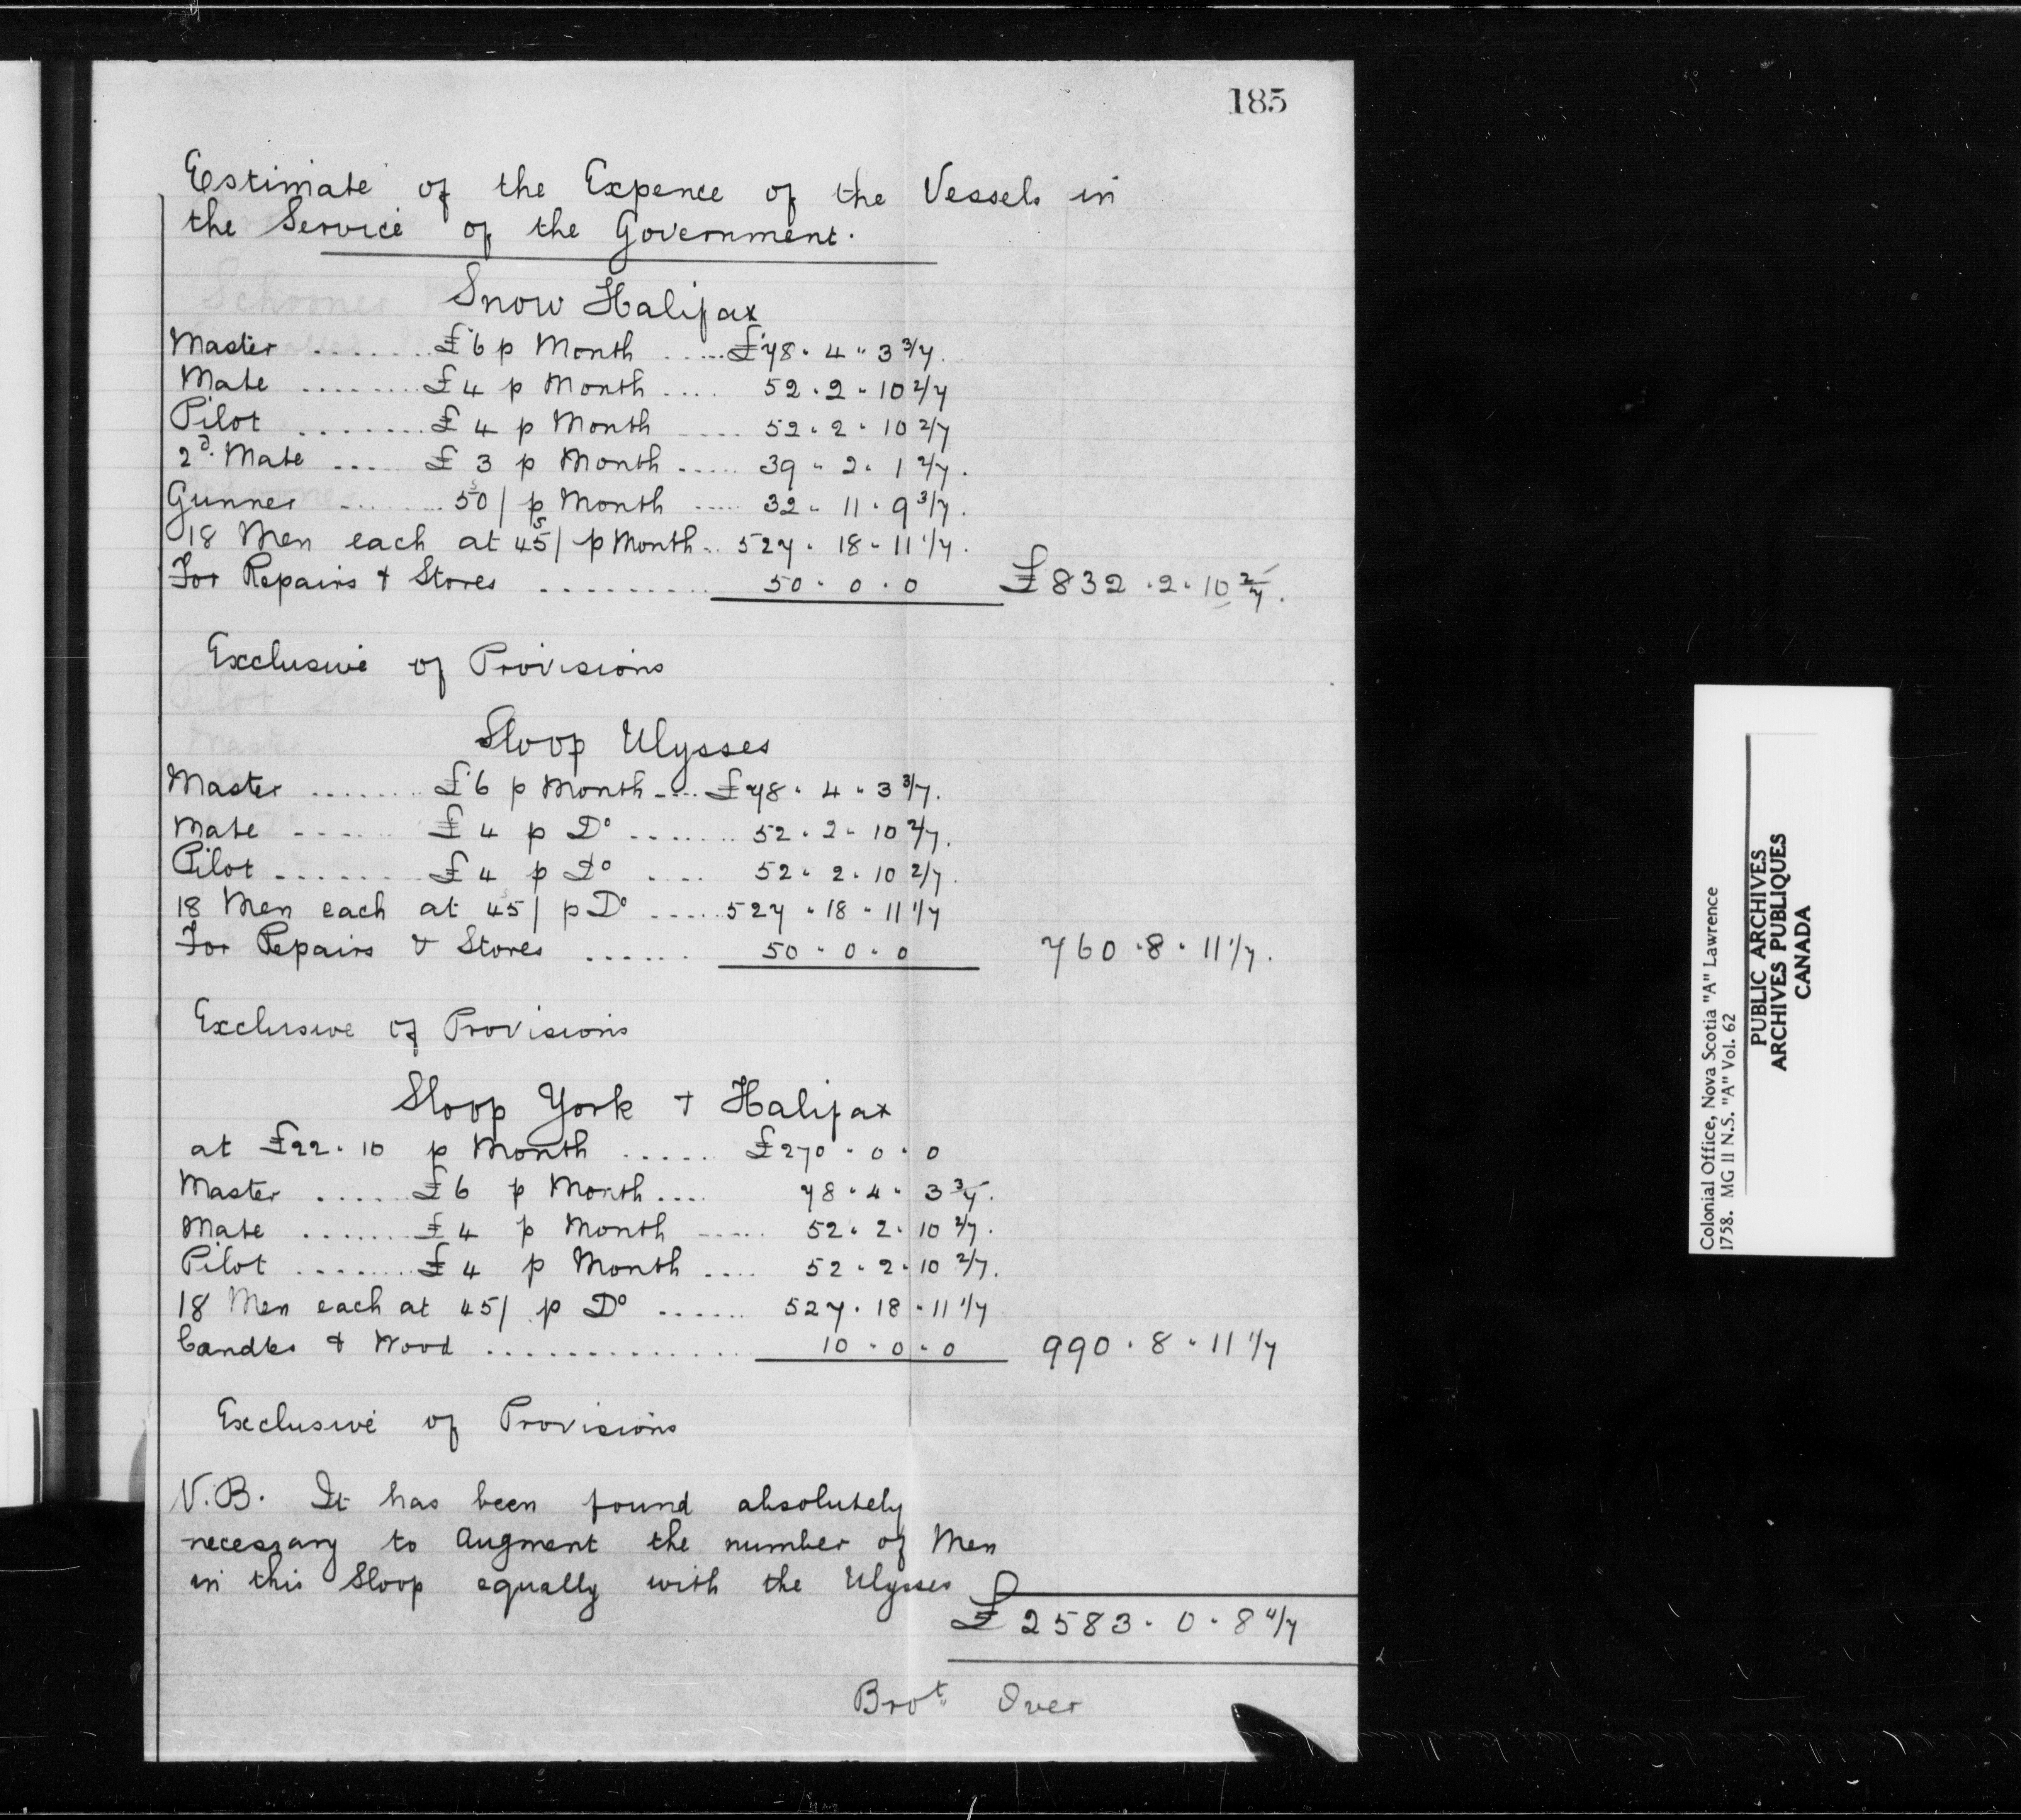 185
Estimate of the Expence of the Vessels in
the Service of the Government.
Snow Halifax
Master ....... £6 p Month ..... £78 . 4 " 3 3/7.
Mate ........ £4 p Month .... 52 . 2 " 10 2/7
Pilot ....... £4 p Month .... 52 . 2 . 10 2/7
2d. Mate .... £3 p Month ..... 39 " 2 . 1 2/7.
Gunner ....... 50s/ p Month ..... 32 " 11 . 9 3/7.
18 Men each at 45s/ p Month .. 527 . 18 " 11 1/7.
For Repairs & Stores ......... 50 . 0 . 0 £832 . 2 . 10 2/7.
Exclusive of Provisions
Sloop Ulysses
Master ....... £6 p Month .... £78 . 4 " 3 3/7.
Mate ..... £4 p Do ....... 52 . 2 " 10 2/7.
Pilot ....... £4 p Do .... 52 . 2 . 10 2/7.
18 Men each at 45/ p Do ..... 527 " 18 " 11 1/7
For Repairs & Stores ...... 50 . 0 . 0 760 . 8 . 11 1/7.
Exclusive of Provisions
Sloop York & Halifax
at £22 . 10 p Month ...... £270 . 0 . 0
Master ..... £6 p Month .... 78 . 4 . 3 3/7.
Mate ....... £4 p Month ..... 52 . 2 . 10 2/7.
Pilot ....... £4 p Month .... 52 . 2 . 10 2/7.
18 Men each at 45/ p Do ...... 527 . 18 . 11 1/7
Candles & Wood .............. 10 . 0 . 0 990 . 8 . 11 1/7
Exclusive of Provisions
N.B. It has been found absolutely
necessary to Augment the number of Men
in this Sloop equally with the Ulysses
£2583 . 0 . 8 4/7
Brot. Over
Colonial Office, Nova Scotia "A" Lawrence
1758. MG 11 N.S. "A" Vol. 62
PUBLIC ARCHIVES
ARCHIVES PUBLIQUES
CANADA